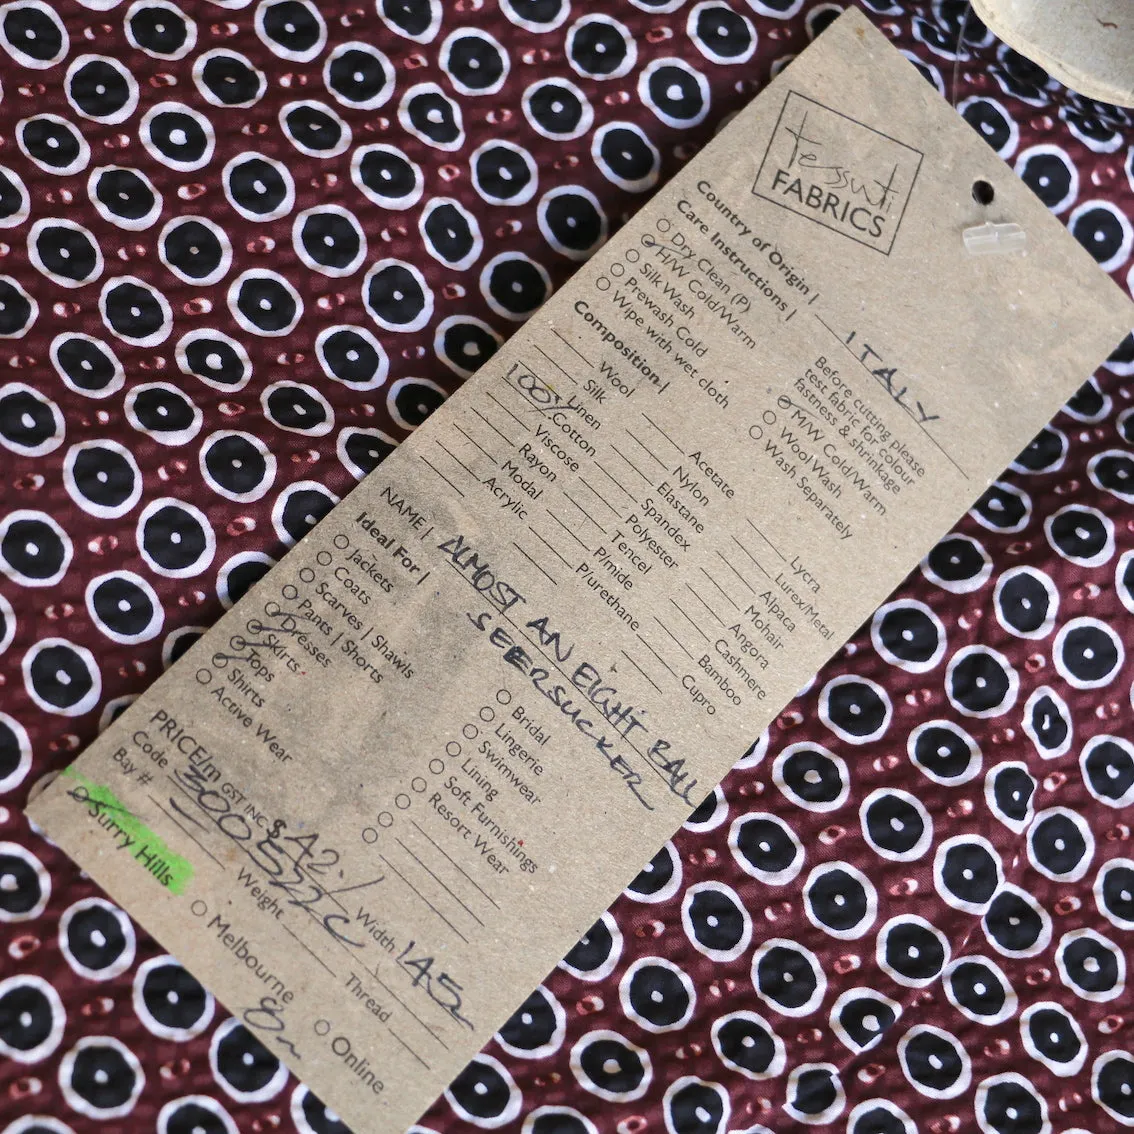 tessuti
FABRICS
Country of Origin | ITALY
Care Instructions |
Dry Clean (P)
H/W Cold/Warm
Silk Wash
Prewash Cold
Wipe with wet cloth
Before cutting please
test fabric for colour
fastness & shrinkage
M/W Cold/Warm
Wool Wash
Wash Separately
Composition |
Wool
Silk
Linen
100% Cotton
Viscose
Rayon
Modal
Acrylic
Acetate
Nylon
Elastane
Spandex
Polyester
Tencel
P/mide
P/urethane
Lycra
Lurex/Metal
Alpaca
Mohair
Angora
Cashmere
Bamboo
Cupro
NAME | ALMOST AN EIGHT BALL
SEERSUCKER
Ideal For |
Jackets
Coats
Scarves | Shawls
Pants | Shorts
Dresses
Skirts
Tops
Shirts
Active Wear
Bridal
Lingerie
Swimwear
Lining
Soft Furnishings
Resort Wear
PRICE/m GST INC $42./
Code 300522C
Bay #
Width 145
Weight
Thread
Surry Hills
Melbourne
Online
8m